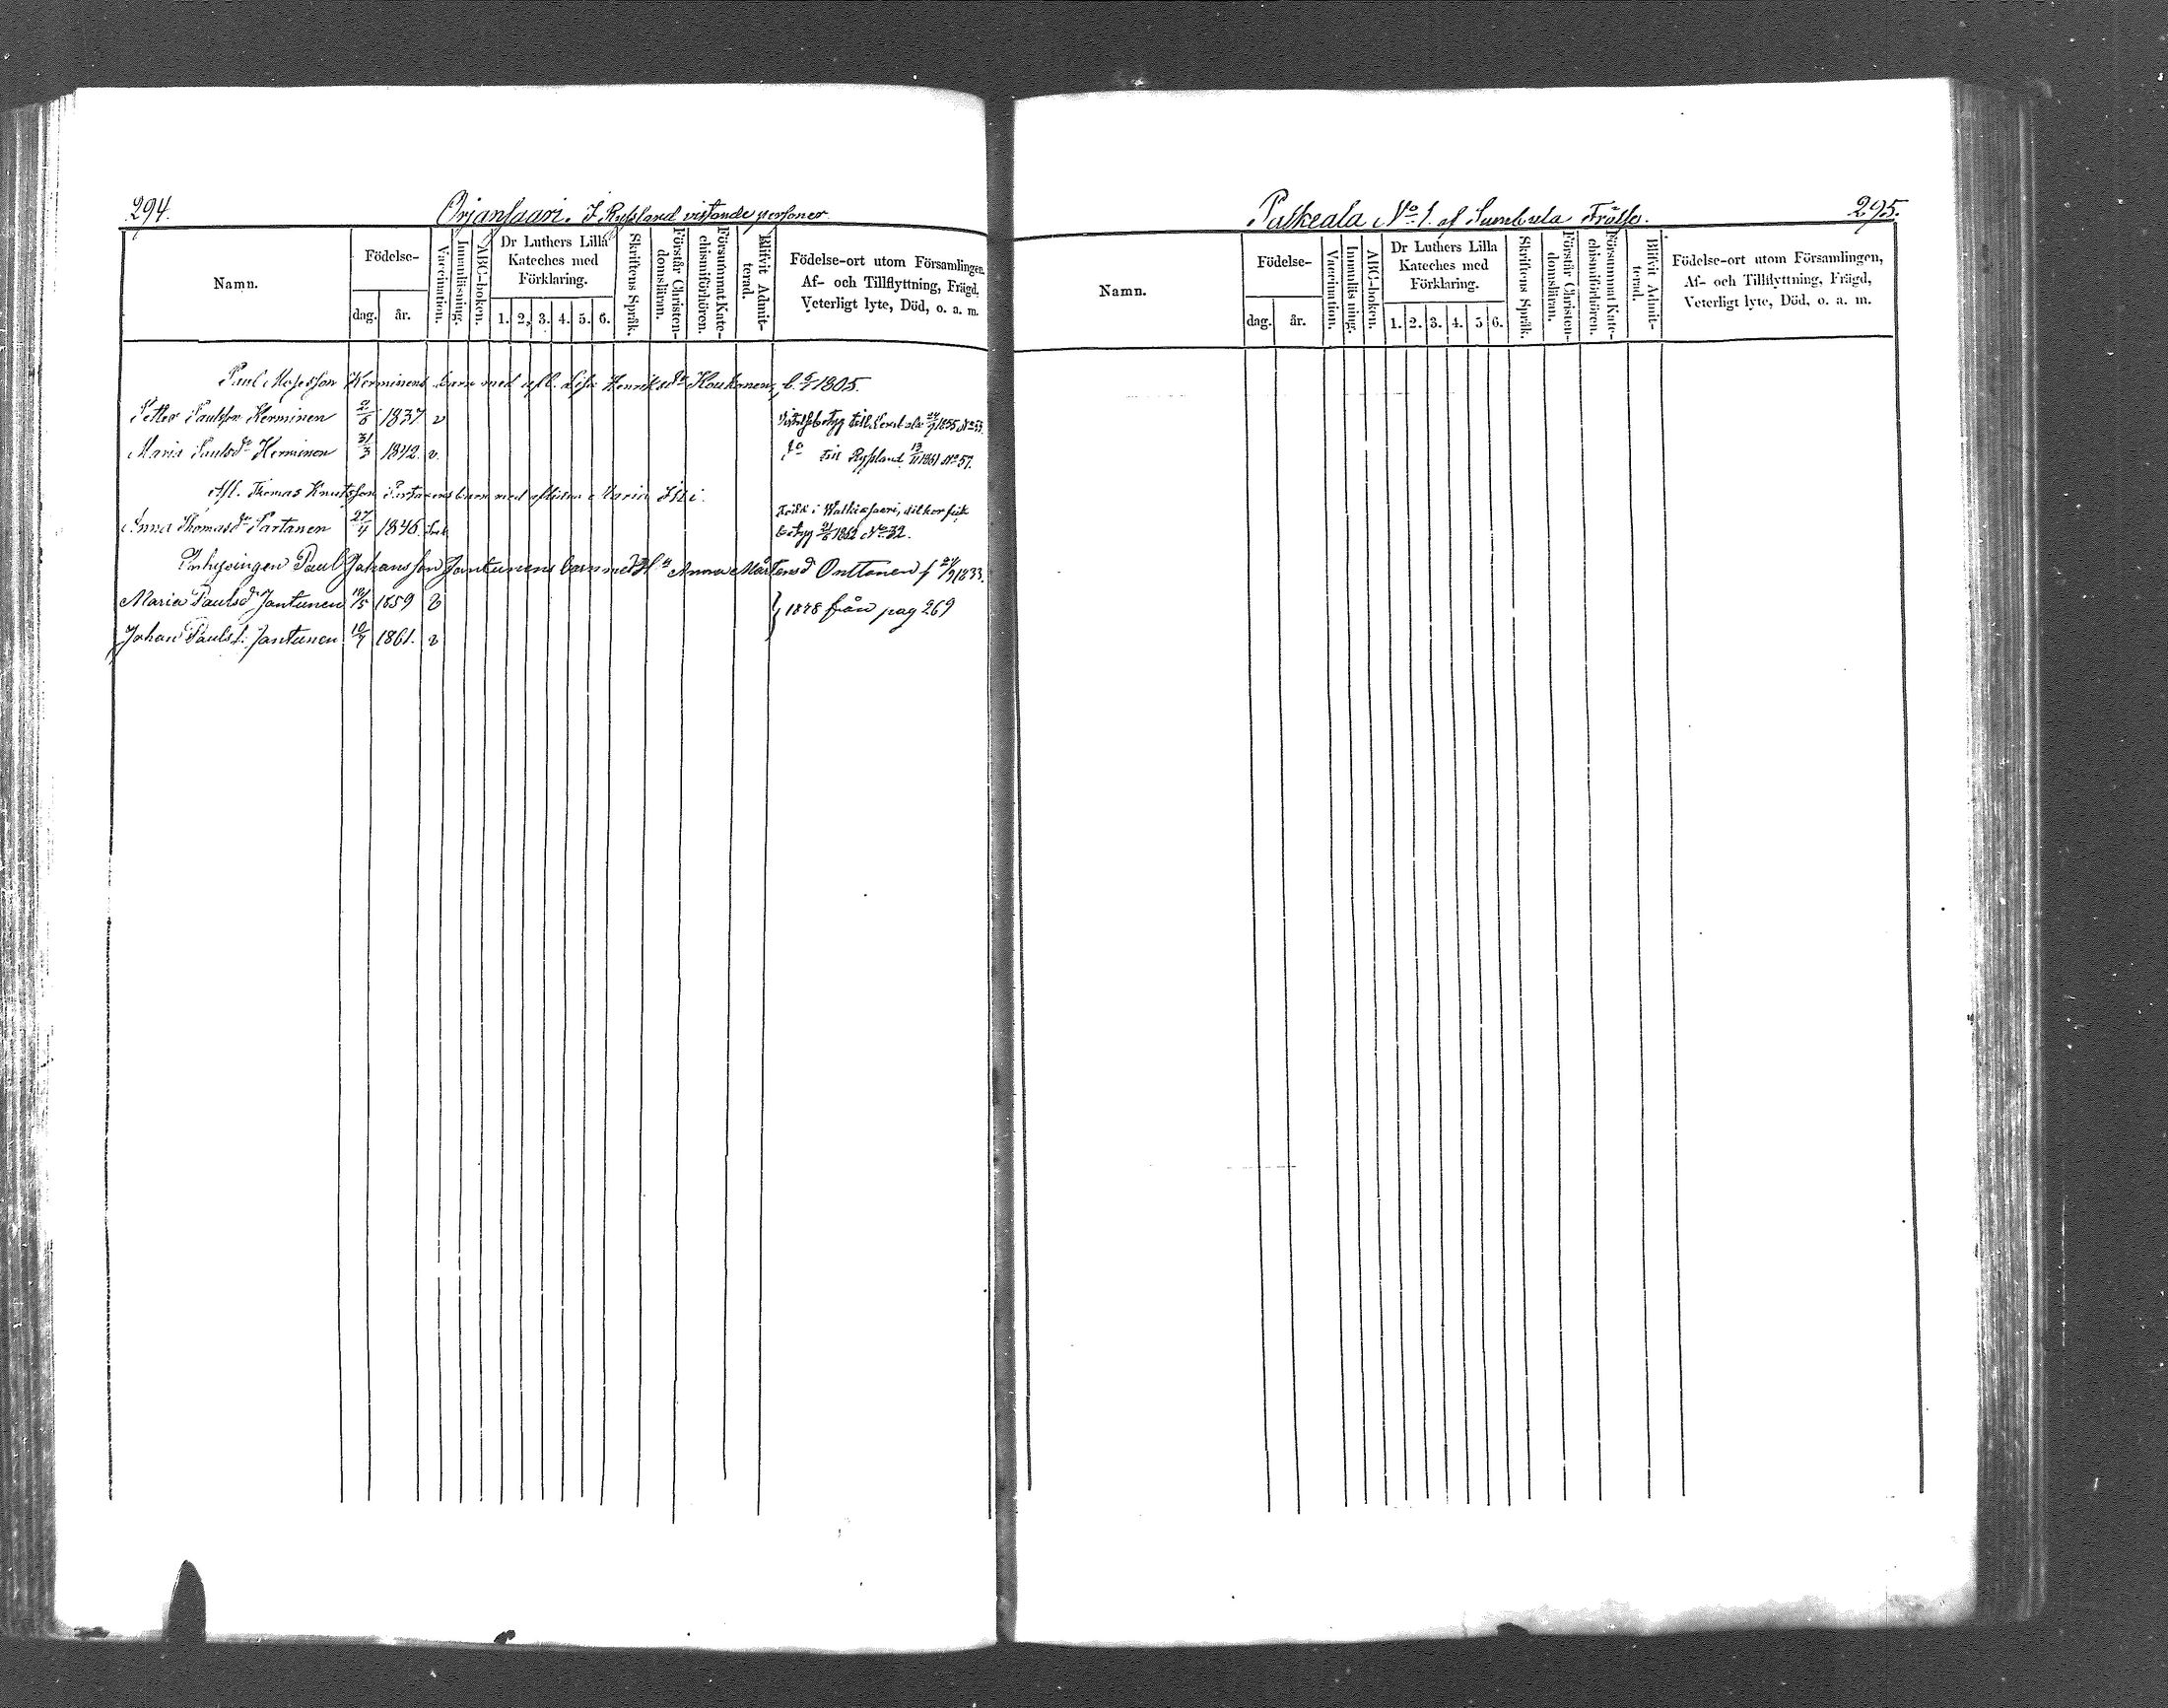 294.
Orjansaari. I Ryssland vistande personer
Namn.
Födelse-
dag. år.
Vaccination.
Innanläsning.
ABC-boken.
Dr Luthers Lilla
Kateches med
Förklaring.
1. 2. 3. 4. 5. 6.
Skriftens Språk.
Förstår Christen-
domsläran.
Försummat Kate-
chismiförhören.
Blifvit Admit-
terad.
Födelse-ort utom Församlingen,
Af- och Tillflyttning, Frägd,
Veterligt lyte, Död, o. a. m.
Paul Mosesson Kerminens barn med afl. Lisa Henriksdr Koukonen, 1805.
Petter Paulsson Kerminen 2/6 1837 v till 1855 No 53.
Maria Paulsdr Kerminen 31/3 1842. v. do till Ryssland 13/11 1861 No 57.
Afl. Thomas Knutsson Partanens barn med aflidna Maria
Anna Thomasdr Partanen 27/4 1846. i Walkiasaari, dit hon fick
betyg 21/6 1862 No 32.
Inhysingen Paul Johansson Jantunens barn med H:u Anna Mårtensd Onttonen f 24/9 1833.
Maria Paulsd Jantunen 10/5 1859 v } 1878 från pag 269
Johan Pauls s. Jantunen 10/7 1861. v
295.
Putkeala No 1. af Sumbula Frälse.
Namn.
Födelse-
dag. år.
Vaccination.
Innanläsning.
ABC-boken.
Dr Luthers Lilla
Kateches med
Förklaring.
1. 2. 3. 4. 5 6.
Skriftens Språk.
Förstår Christen-
domsläran.
Försummat Kate-
chismiförhören.
Blifvit Admit-
terad.
Födelse-ort utom Församlingen,
Af- och Tillflyttning, Frägd,
Veterligt lyte, Död, o. a. m.